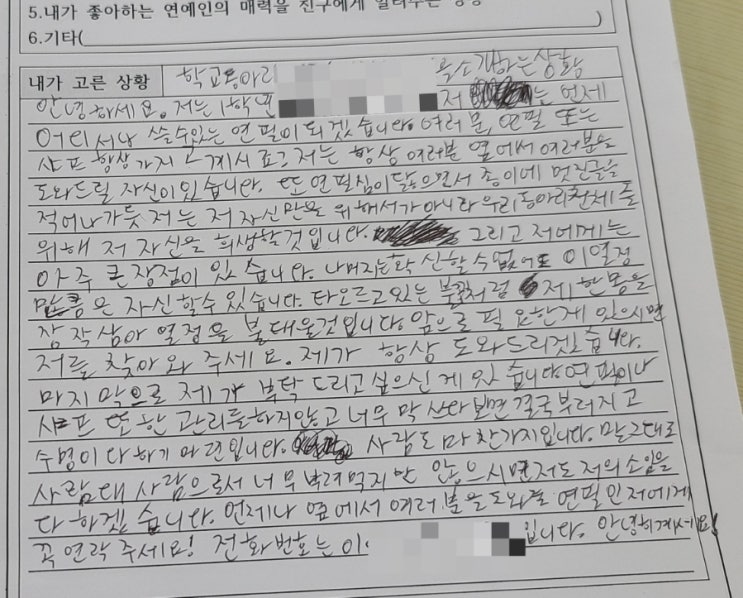 5.내가 좋아하는 연예인의 매력을 친구에게 알려주는 상황
6.기타( )
내가 고른 상황 학교동아리 목소개하는상황
안녕하세요. 저는 1학년 저 는 언제
어디서나 쓸수있는 연필이 되겠습니다. 여러분, 연필 또는
샤프 항상 가지고 계시죠? 저는 항상 여러분 옆에서 여러분을
도와드릴 자신이 있습니다. 또 연필심이 닳으면서 종이에 멋진글을
적어나가듯 저는 저 자신만을 위해서가아니라 우리동아리전체를
위해 저 자신을 희생할것입니다. 그리고 저에게는
아주 큰장점이 있습니다. 나머지는확신할수없어도 이열정
만큼은 자신할수 있습니다. 타오르고있는 불꽃처럼 제 한몸을
장작삼아 열정을 불태울것입니다. 앞으로 필요한게 있으시면
저를 찾아와 주세요. 제가 항상 도와드리겠습니다.
마지막으로 제가 부탁드리고싶으신게 있습니다. 연필이나
샤프 또한 관리를하지않고 너무 막 쓰다보면 결국 부러지고
수명이 다하기 마련입니다. 사람도 마찬가지입니다. 말그대로
사람대 사람으로서 너무 부려먹지만 않으시면 저도 저의 소임을
다 하겠습니다. 언제나 옆에서 여러분을 도와줄 연필인 저에게
꼭 연락 주세요! 전화번호는 01 입니다. 안녕히계세요!